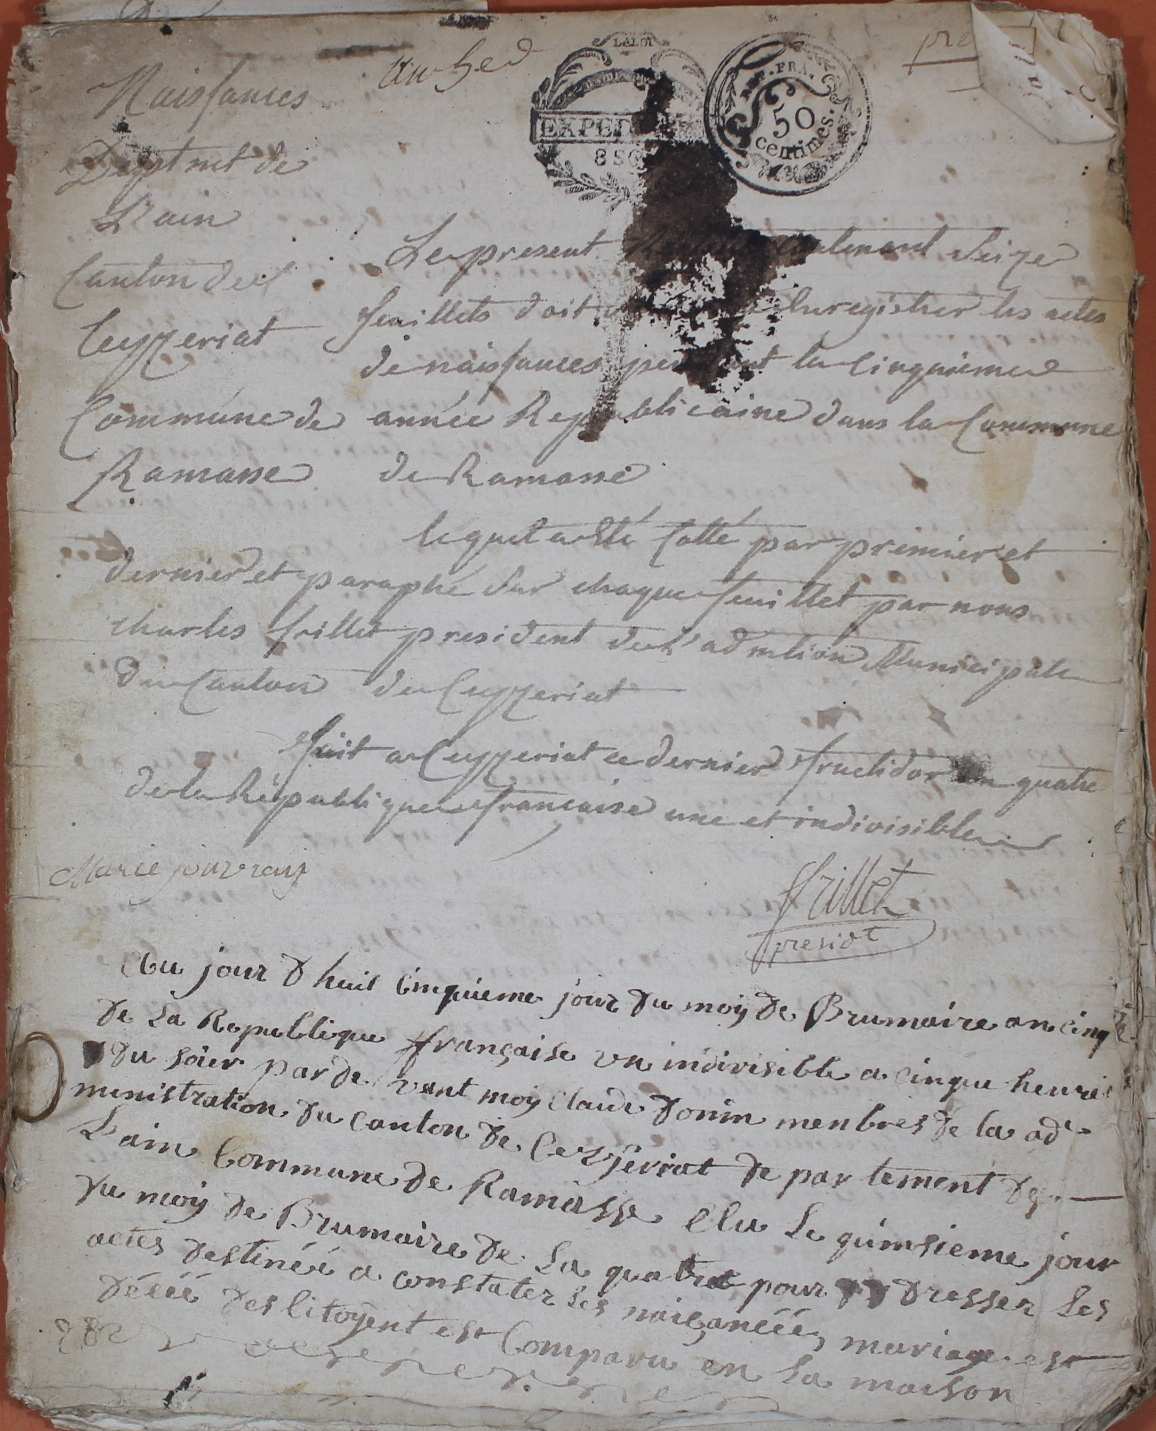 Naissances
Departmt de
L'ain
Canton de
Ceyzeriat
Commune de
Ramasse
LA LOI
REP. FRA.
50
centimes.
Le present contenant Seize
feuillets doit Enregistrer les actes
de naissances pendant la Cinquieme
année Republicaine dans la Commune
de Ramasse
lequel a Eté Cotté par premier et
dernier et paraphé Sur chaque feuillet par nous
charles frillet president de l'admtion Municipale
du Canton de Ceyzeriat
fait a Ceyzeriat ce dernier fructidor an quatre
de la République française une et indivisible
Marie
frillet
presidt
Au jour d huit Cinquieme jour du moy de Brumaire an cinq
de La Republique française un indivisible a cinque heures
du soier par de vant moy Claude donin menbres de la ad
ministration du canton de Ceyzeriat de par tement de
L'ain Commune de Ramasse Elu Le quinsieme jour
du moy de Brumaire de La quatre pour dresser Les
actes destinéé a constater Les naiçancéé, mariage est
décéé des Citoyent est Comparu en La maison